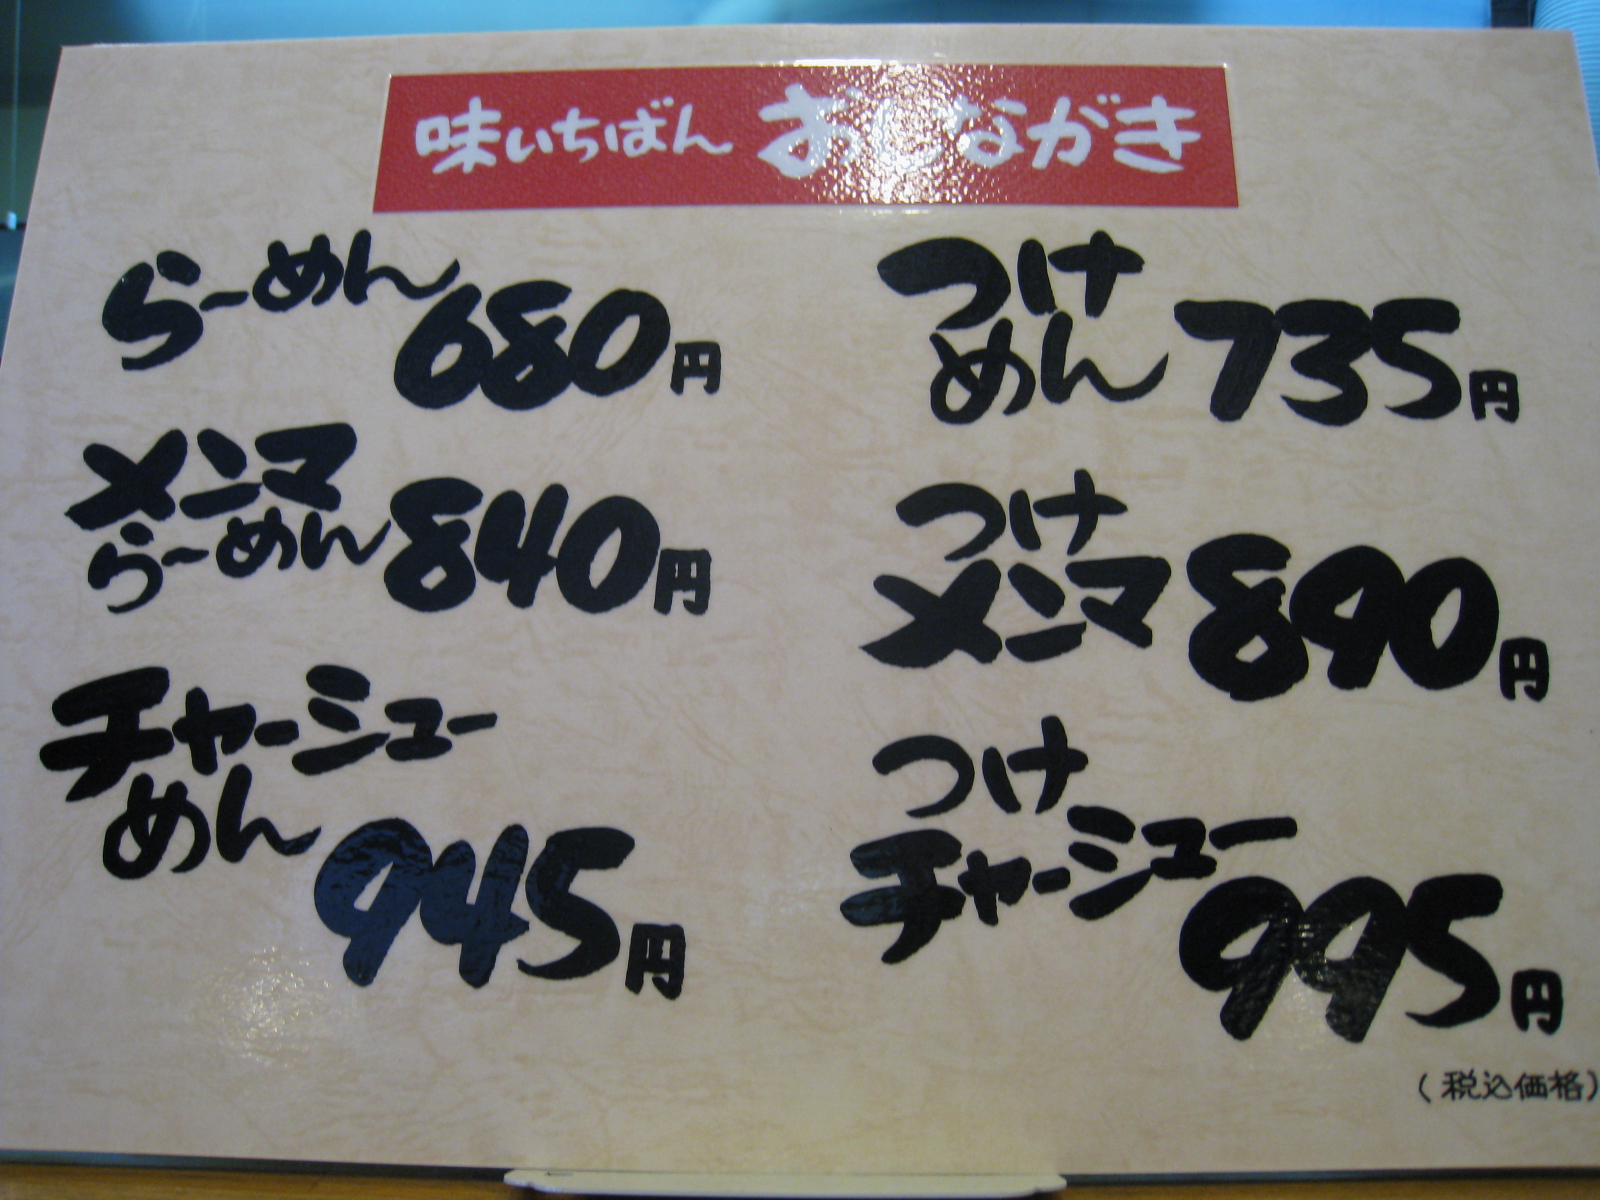 味いちばん おしながき
らーめん 680円
メンマ
らーめん 840円
チャーシュー
めん 945円
つけ
めん 735円
つけ
メンマ 890円
つけ
チャーシュー 995円
(税込価格)